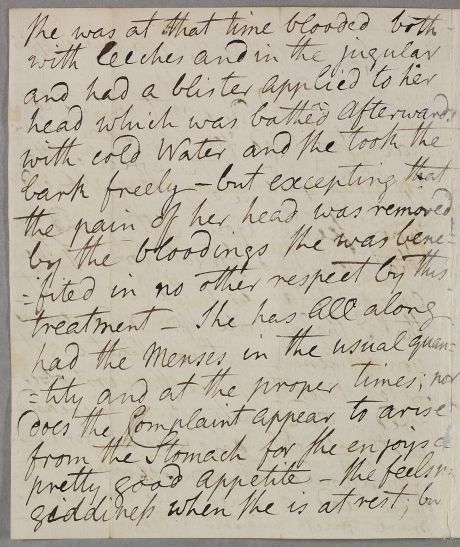 She was at that time blooded both
with leeches and in the jugular
and had a blister applied to her
head which was bathed afterwards
with cold Water and she took the
bark freely – but excepting that
the pain of her head was removed
by the bloodings she was bene-
=fited in no other respect by this
treatment – She has all along
had the Menses in the usual quan-
=tity and at the proper times; nor
does the Complaint appear to arise
from the Stomach for she enjoys a
pretty good appetite – she feels
giddiness when she is at rest; bu